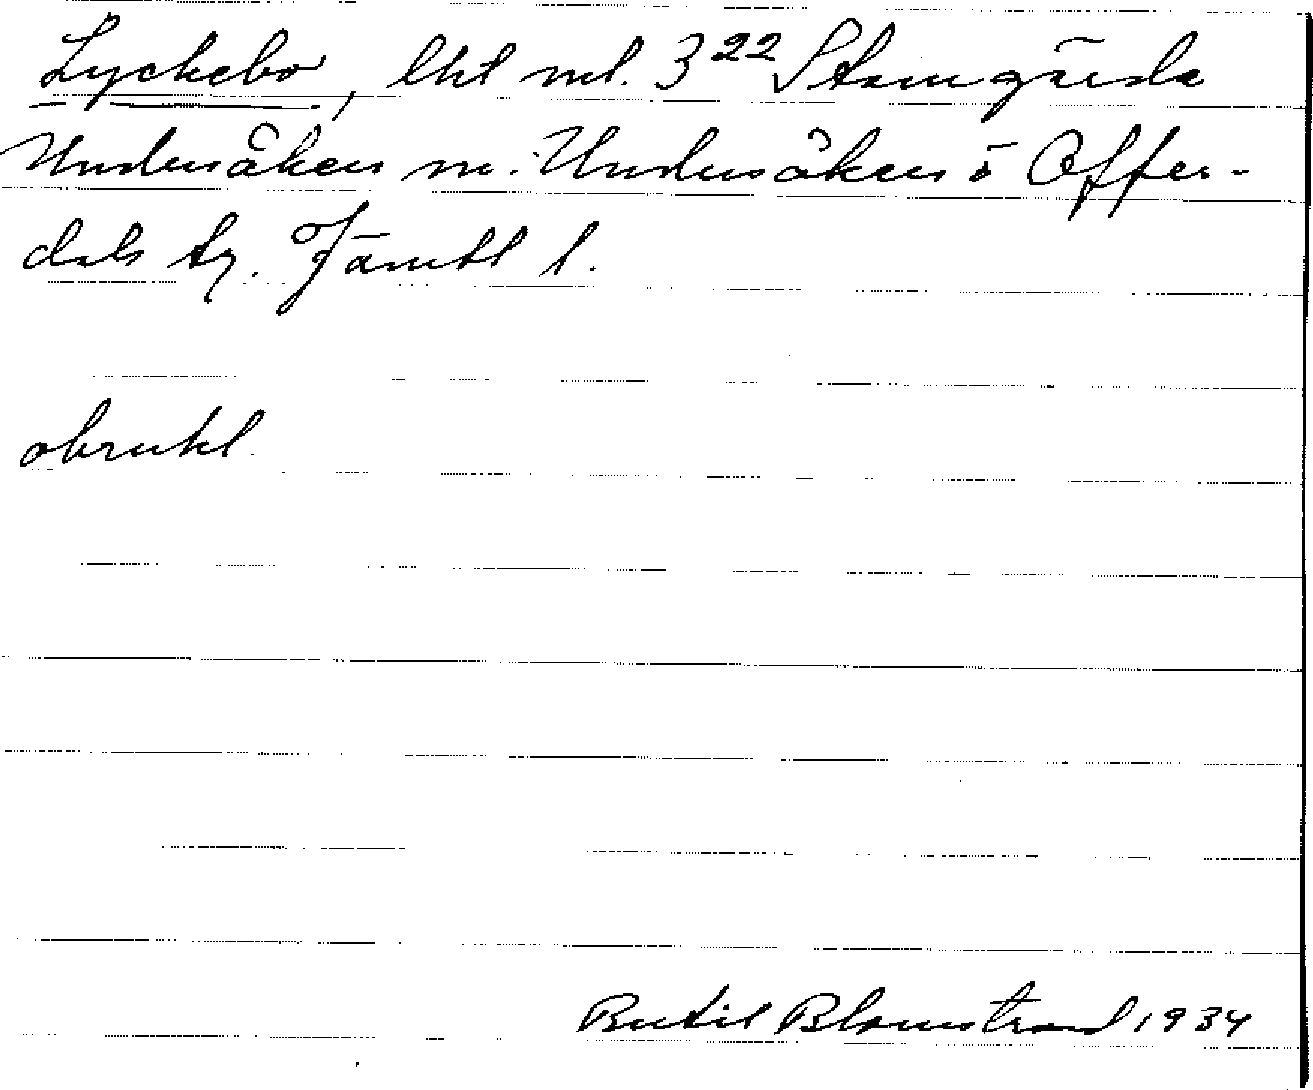 Lyckebo, lht nel. 3²² Stamgärde
Undersåkers sn. Undersåkers o Offer-
dals tg. Jämtl l.
obrukl.
Bertil Blomstrand 1934